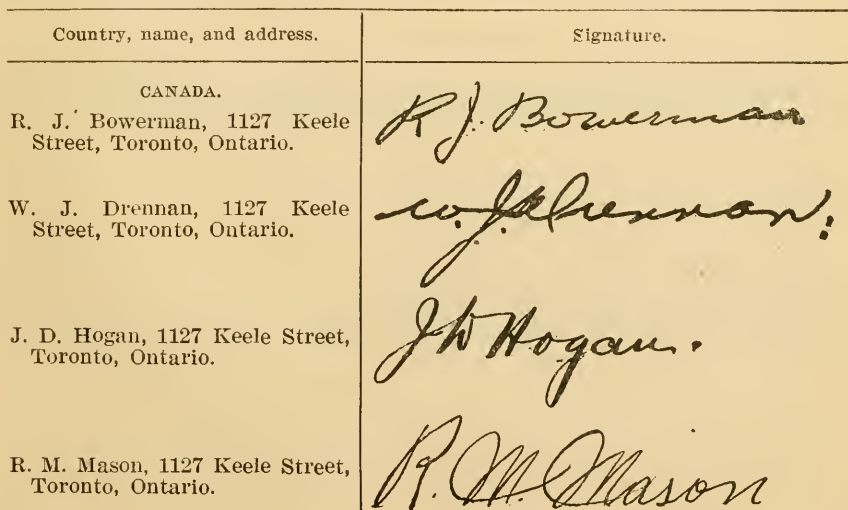 Country, name, and address.
Signature.
CANADA.
R. J. Bowerman, 1127 Keele
Street, Toronto, Ontario.
R J. Bowerman
W. J. Drennan, 1127 Keele
Street, Toronto, Ontario.
W. J. Drennan.
J. D. Hogan, 1127 Keele Street,
Toronto, Ontario.
J D Hogan.
R. M. Mason, 1127 Keele Street,
Toronto, Ontario.
R. M. Mason